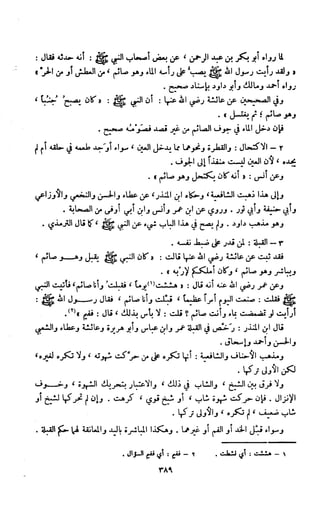 لما رواه أبو بكر بن عبد الرحمن ، عن بعض أصحاب النبي ﷺ : أنه حدثه فقال :
« ولقد رأيت رسول الله ﷺ يصب على رأسه الماء وهو صائم ، من العطش أو من الحر »
رواه أحمد ومالك وأبو داود بإسناد صحيح .
وفي الصحيحين عن عائشة رضي الله عنها : أن النبي ﷺ : « كان يصبح جنباً ،
وهو صائم ، ثم يغتسل » .
فإن دخل الماء في جوف الصائم من غير قصد فصومه صحيح .
٢ - الاكتحال : والقطرة ونحوهما مما يدخل العين ، سواء أوجد طعمه في حلقه أم لم
يجده ، لأن العين ليست منفذاً إلى الجوف .
وعن أنس : « أنه كان يكتحل وهو صائم » .
وإلى هذا ذهب الشافعية ، وحكاه ابن المنذر ، عن عطاء والحسن والنخعي والأوزاعي
وأبي حنيفة وأبي ثور . وروي عن ابن عمر وأنس وابن أبي أوفى من الصحابة .
وهو مذهب داود . ولم يصح في هذا الباب شيء عن النبي ﷺ ، كما قال الترمذي .
٣ - القبلة : لمن قدر على ضبط نفسه .
فقد ثبت عن عائشة رضي الله عنها قالت : « كان النبي ﷺ يقبل وهو صائم ،
ويباشر وهو صائم ، وكان أملككم لإربه » .
وعن عمر رضي الله عنه أنه قال : « هششت (١) يوماً ، فقبلت وأنا صائم ، فأتيت النبي
ﷺ فقلت : صنعت اليوم أمراً عظيماً ، قبلت وأنا صائم ، فقال رسول الله ﷺ :
أرأيت لو تمضمضت بماء وأنت صائم ؟ قلت : لا بأس بذلك ، قال : ففيم » (٢) .
قال ابن المنذر : رخص في القبلة عمر وابن عباس وأبو هريرة وعائشة وعطاء والشعبي
والحسن وأحمد وإسحاق .
ومذهب الأحناف والشافعية : أنها تكره على من حركت شهوته ، ولا تكره لغيره ،
لكن الأولى تركها .
ولا فرق بين الشيخ ، والشاب في ذلك ، والاعتبار بتحريك الشهوة ، وخوف
الإنزال . فإن حركت شهوة شاب ، أو شيخ قوي ، كرهت . وإن لم تحركها لشيخ أو
شاب ضعيف ، لم تكره ، والأولى تركها .
وسواء قبل الخد أو الفم أو غيرهما . وهكذا المباشرة باليد والمعانقة لهما حكم القبلة .
١ - هششت : أي نشطت .
٢ - ففيم : أي ففيم السؤال .
٣٨٩